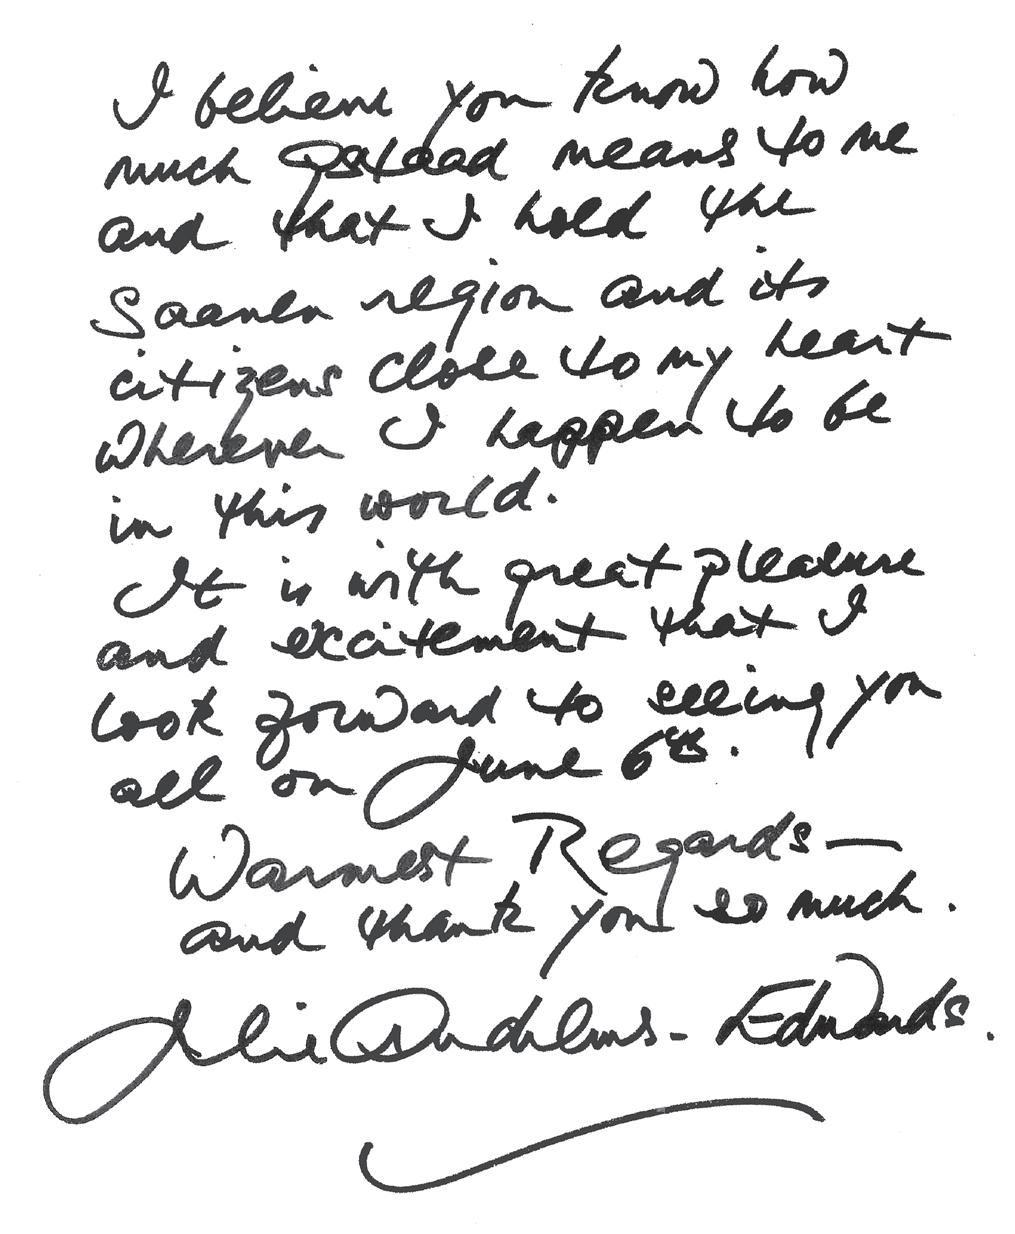 I believe you know how
much Gstaad means to me
and that I hold the
Saanen region and its
citizens close to my heart
wherever I happen to be
in this world.
It is with great pleasure
and excitement that I
look forward to seeing you
all on June 6th.
Warmest Regards—
and thank you so much.
Julie Andrews-Edwards.